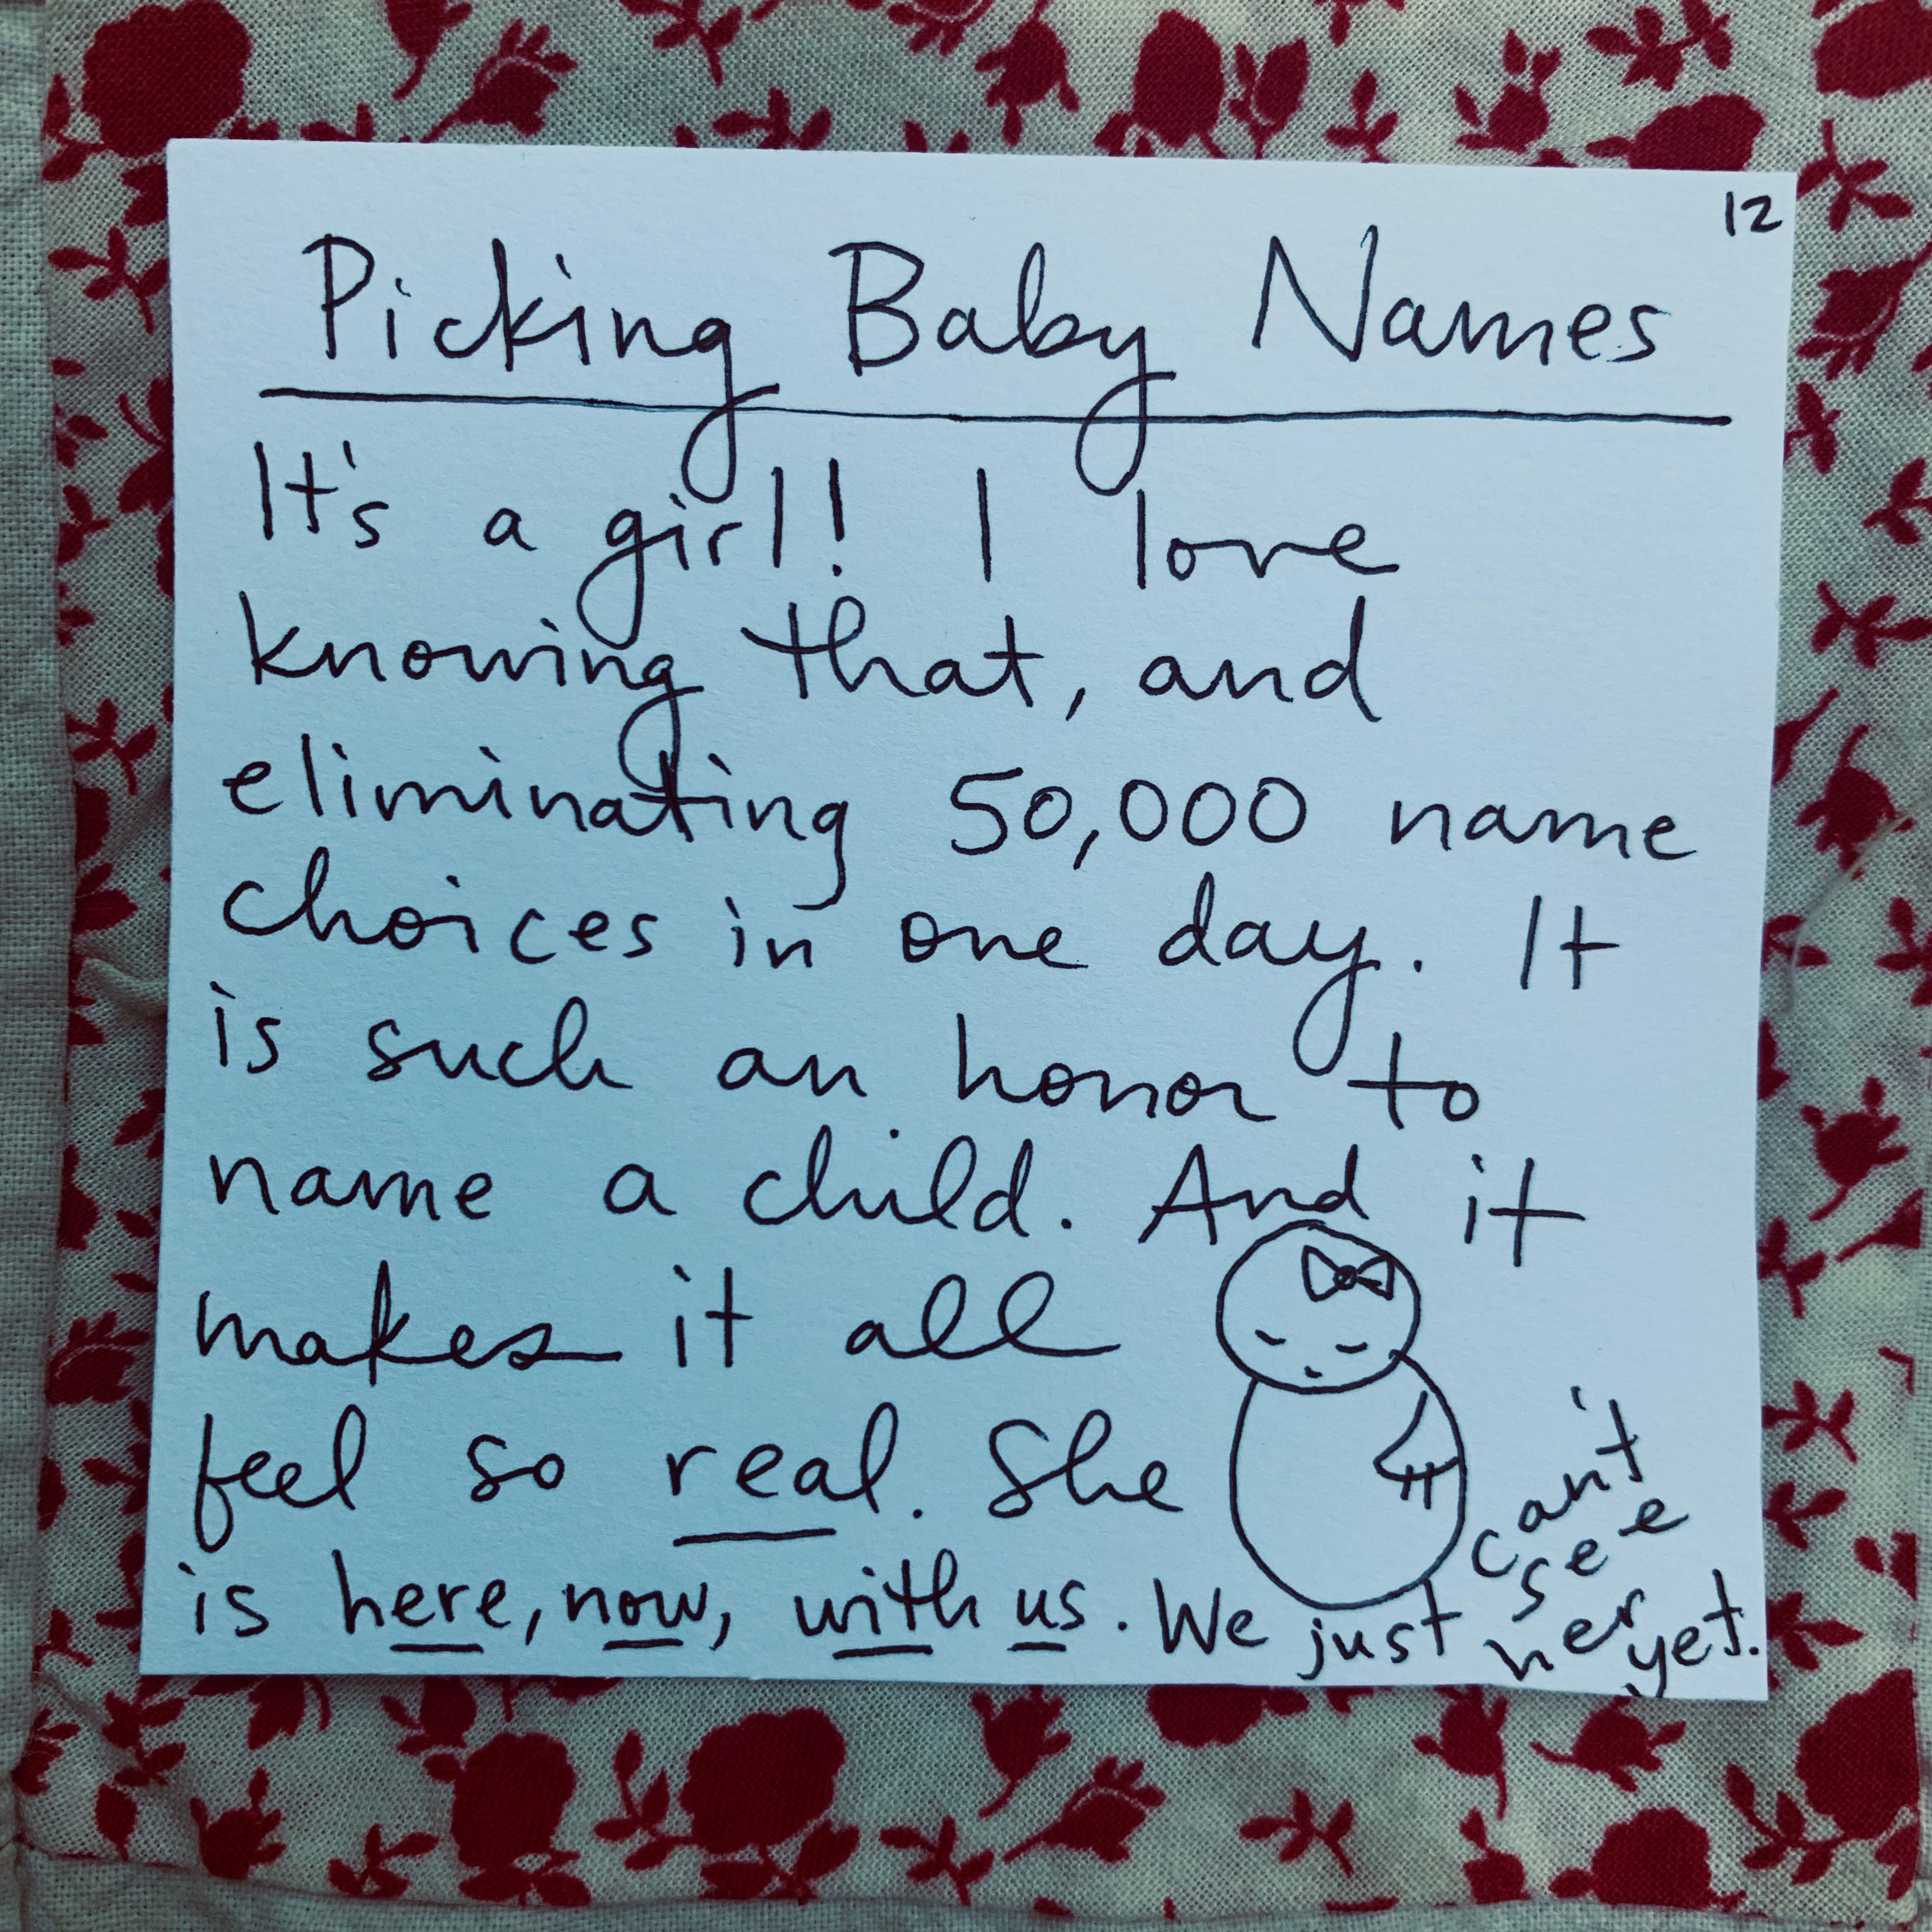 12
Picking Baby Names
It's a girl! I love
knowing that, and
eliminating 50,000 name
choices in one day. It
is such an honor to
name a child. And it
makes it all
feel so real. She
is here, now, with us. We just
can't
see
her
yet.